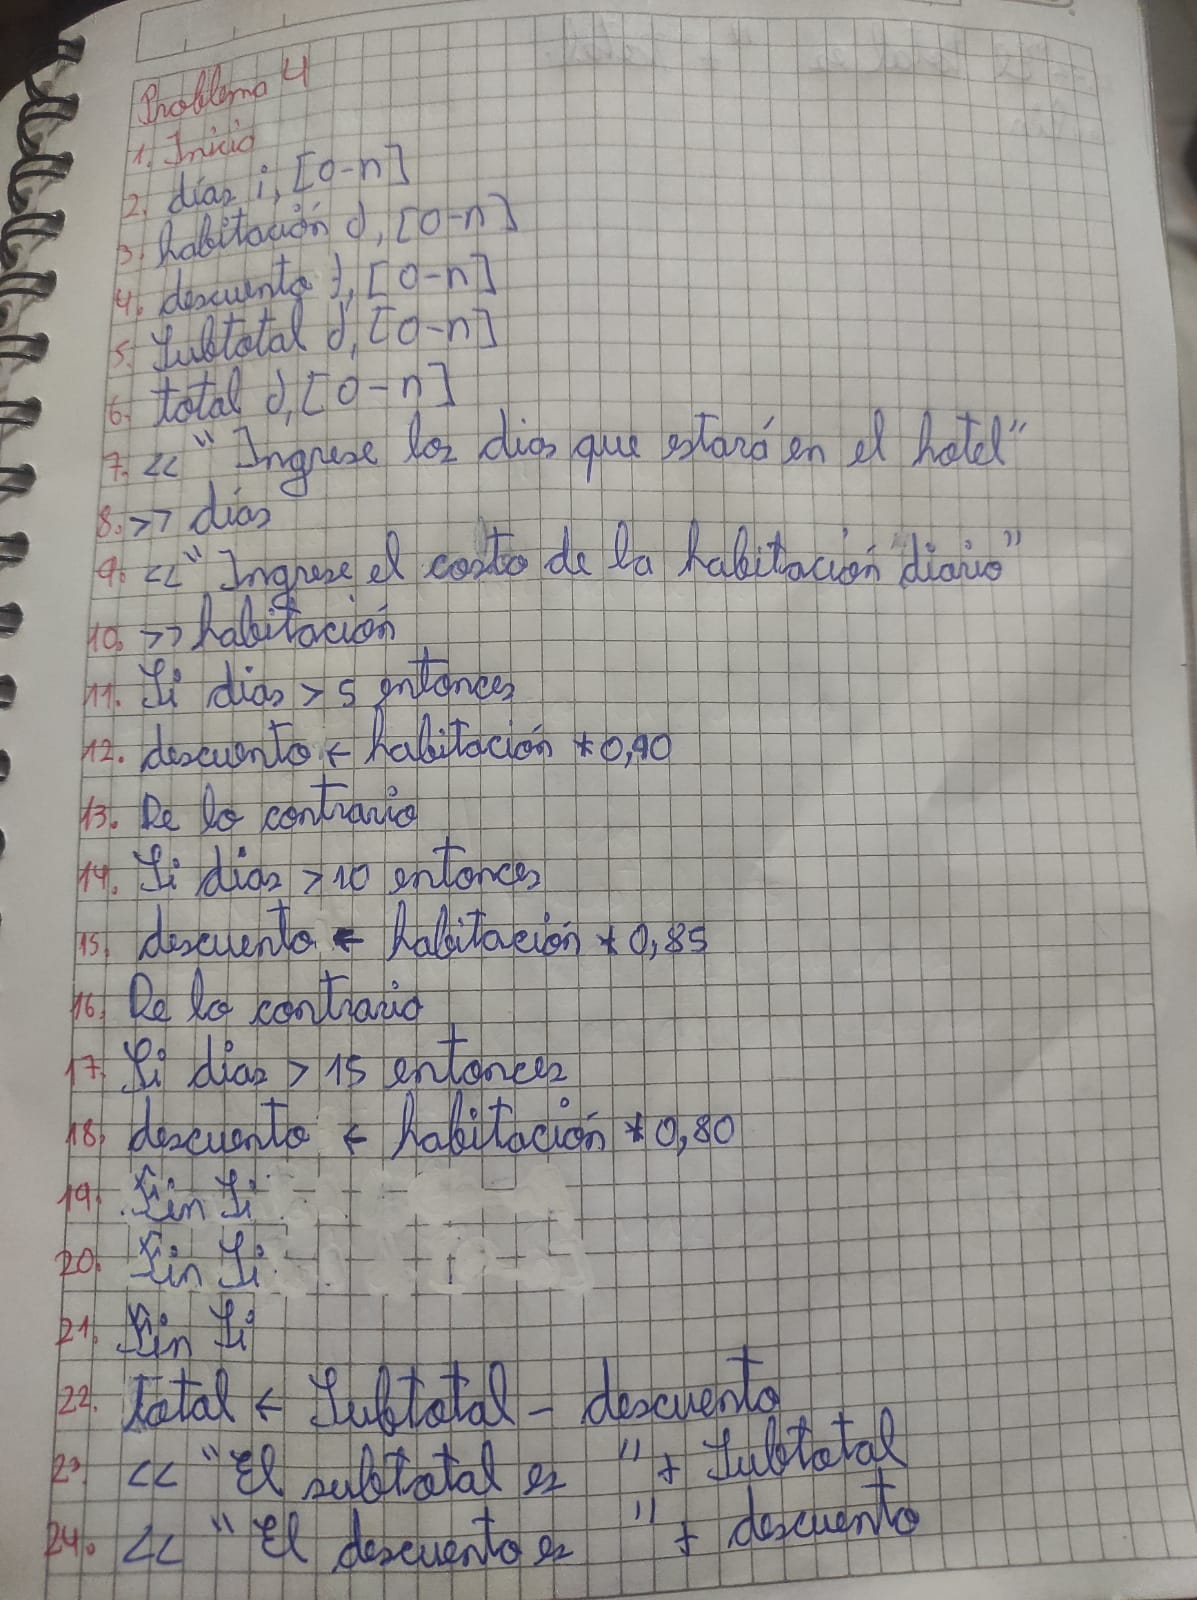 Problema 4
1. Inicio
2. días i, [0-n]
3. habitación d, [0-n]
4. descuento d, [0-n]
5. Subtotal d, [0-n]
6. total d, [0-n]
7. << "Ingrese los dias que estará en el hotel"
8. >> días
9. << "Ingrese el costo de la habitación diario"
10. >> habitación
11. Si dias > 5 entonces
12. descuento ← habitación * 0,90
13. De lo contrario
14. Si dias > 10 entonces
15. descuento ← habitación * 0,85
16. De lo contrario
17. Si dias > 15 entonces
18. descuento ← habitación * 0,80
19. Fin Si
20. Fin Si
21. Fin Si
22. total ← Subtotal - descuento
23. << "El subtotal es " + Subtotal
24. << "El descuento es " + descuento